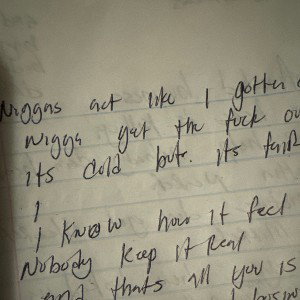 Niggas act like I gotten
Nigga get the fuck ou
its cold but its fair
I
I Know how it feel
Nobody keep it Real
and thats all you is